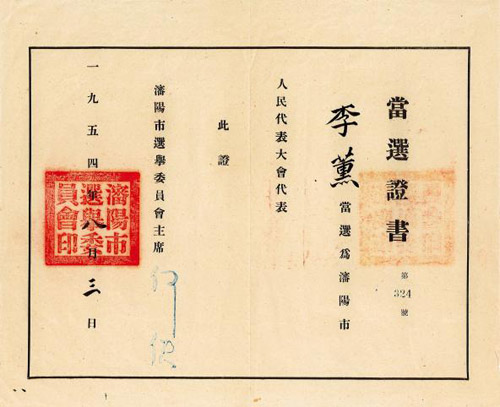 當選證書
第324號
李薰當選為瀋陽市
人民代表大會代表
此證
瀋陽市選舉委員會主席
一九五四年八月三日
瀋陽市
選舉委
員會印